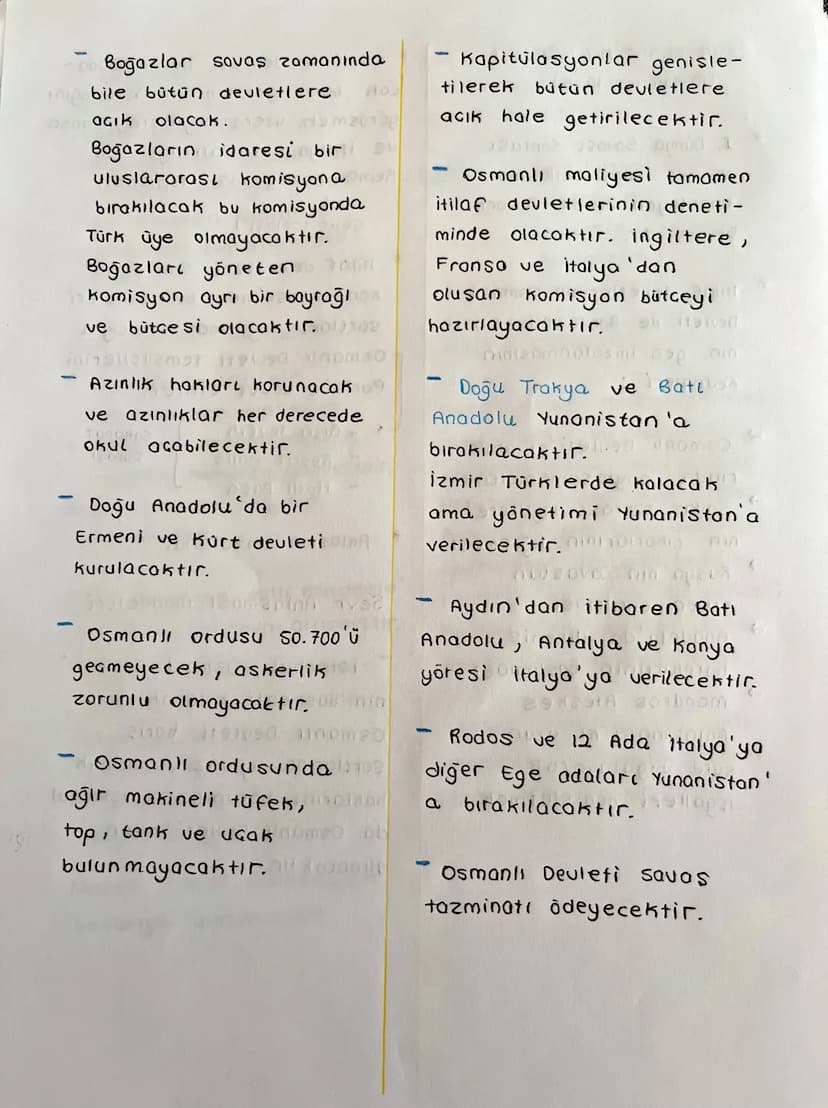 - Boğazlar savaş zamanında
bile bütün devletlere
acık olacak.
Boğazların idaresi bir
uluslararası komisyona
bırakılacak bu komisyonda
Türk üye olmayacaktır.
Boğazları yöneten
komisyon ayrı bir bayrağı
ve bütcesi olacaktır.
- Azınlık hakları korunacak
ve azınlıklar her derecede
okul acabilecektir.
- Doğu Anadolu'da bir
Ermeni ve Kürt devleti
kurulacaktır.
- Osmanlı ordusu 50.700'ü
gecmeyecek, askerlik
zorunlu olmayacaktır.
- Osmanlı ordusunda
ağır makineli tüfek,
top, tank ve ucak
bulunmayacaktır.
- Kapitülasyonlar genisle-
tilerek bütün devletlere
acık hale getirilecektir.
- Osmanlı maliyesi tamamen
itilaf devletlerinin deneti-
minde olacaktır. ingiltere,
Fransa ve italya'dan
olusan komisyon bütceyi
hazırlayacaktır.
- Doğu Trakya ve Batı
Anadolu Yunanistan'a
bırakılacaktır.
İzmir Türklerde kalacak
ama yönetimi Yunanistan'a
verilecektir.
- Aydın'dan itibaren Batı
Anadolu, Antalya ve Konya
yöresi italya'ya verilecektir.
- Rodos ve 12 Ada italya'ya
diğer Ege adaları Yunanistan'
a bırakılacaktır.
- Osmanlı Devleti savas
tazminatı ödeyecektir.